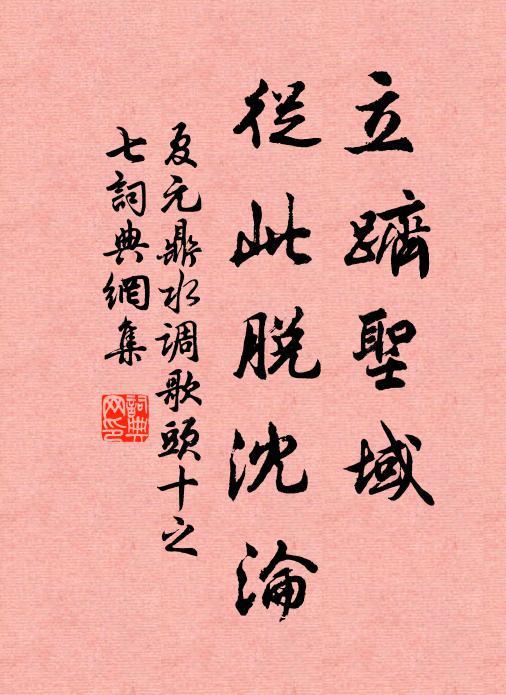 立躋聖域
從此脫沈淪
夏元鼎水调歌頭十之
七詞典網集
詞典网印